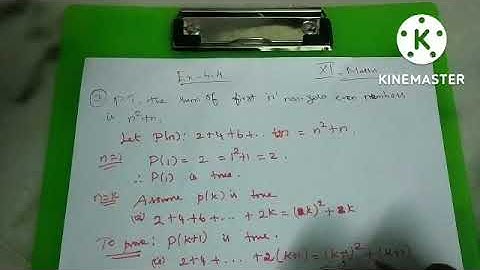 K
KINEMASTER
Ex-4.4
XI - Maths
2) P.T. the sum of first 'n' non-zero even numbers
is n²+n.
Let P(n): 2+4+6+... = n²+n
n=1 P(1) = 2 = 1²+1 = 2.
∴ P(1) is true.
n=k Assume P(k) is true
2+4+6+...+2k = (k)²+k
To prove: P(k+1) is true.
2+4+...+2(k+1) = (k+1)²+(k+1)